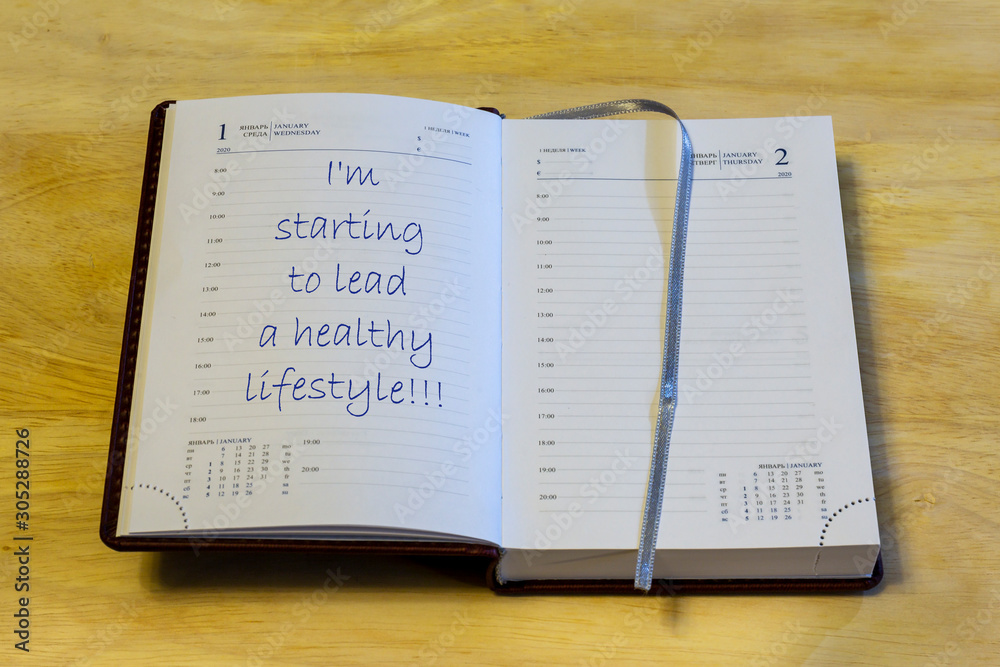 1 ЯНВАРЬ | JANUARY
СРЕДА | WEDNESDAY
2020
1 НЕДЕЛЯ | WEEK
$
€
8:00
9:00
10:00
11:00
12:00
13:00
14:00
15:00
16:00
17:00
18:00
19:00
20:00
I'm
starting
to lead
a healthy
lifestyle!!!
ЯНВАРЬ | JANUARY
пн 6 13 20 27 mo
вт 7 14 21 28 tu
ср 1 8 15 22 29 we
чт 2 9 16 23 30 th
пт 3 10 17 24 31 fr
сб 4 11 18 25 sa
вс 5 12 19 26 su
1 НЕДЕЛЯ | WEEK
$
€
ЯНВАРЬ | JANUARY 2
ТВЕРГ | THURSDAY
2020
8:00
9:00
10:00
11:00
12:00
13:00
14:00
15:00
16:00
17:00
18:00
19:00
20:00
ЯНВАРЬ | JANUARY
пн 6 13 20 27 mo
вт 7 14 21 28 tu
ср 1 8 15 22 29 we
чт 2 9 16 23 30 th
пт 3 10 17 24 31 fr
сб 4 11 18 25 sa
вс 5 12 19 26 su
Adobe Stock | #305288726